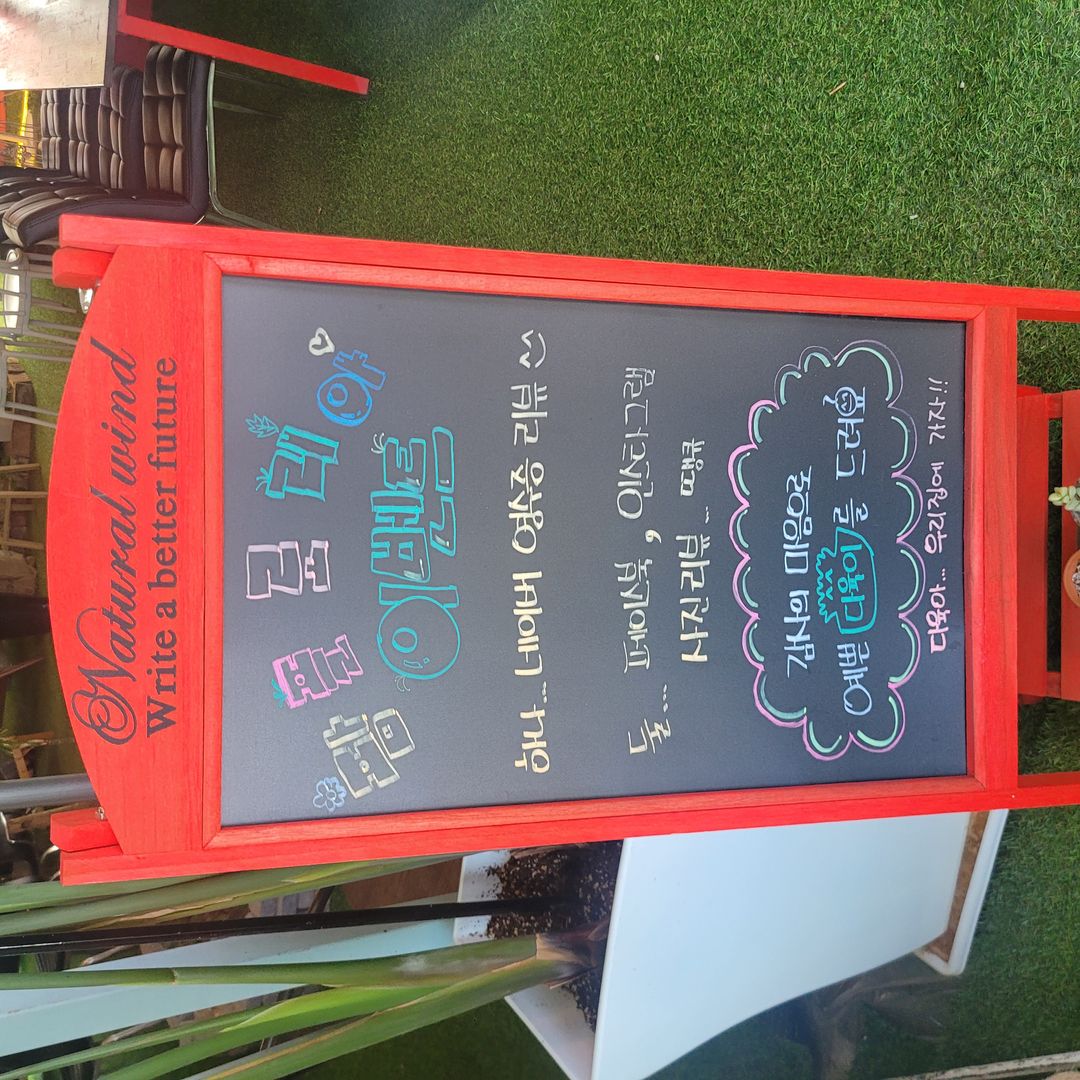 Natural wind
Write a better future
팜플로리아
이벤트
하나... 네이버 영수증 리뷰 ^^
둘... 페이스북, 인스타그램
사진리뷰... 땡큐
감사의 마음으로
예쁜 다육이를 드려요
다육아... 우리집에 가자!!